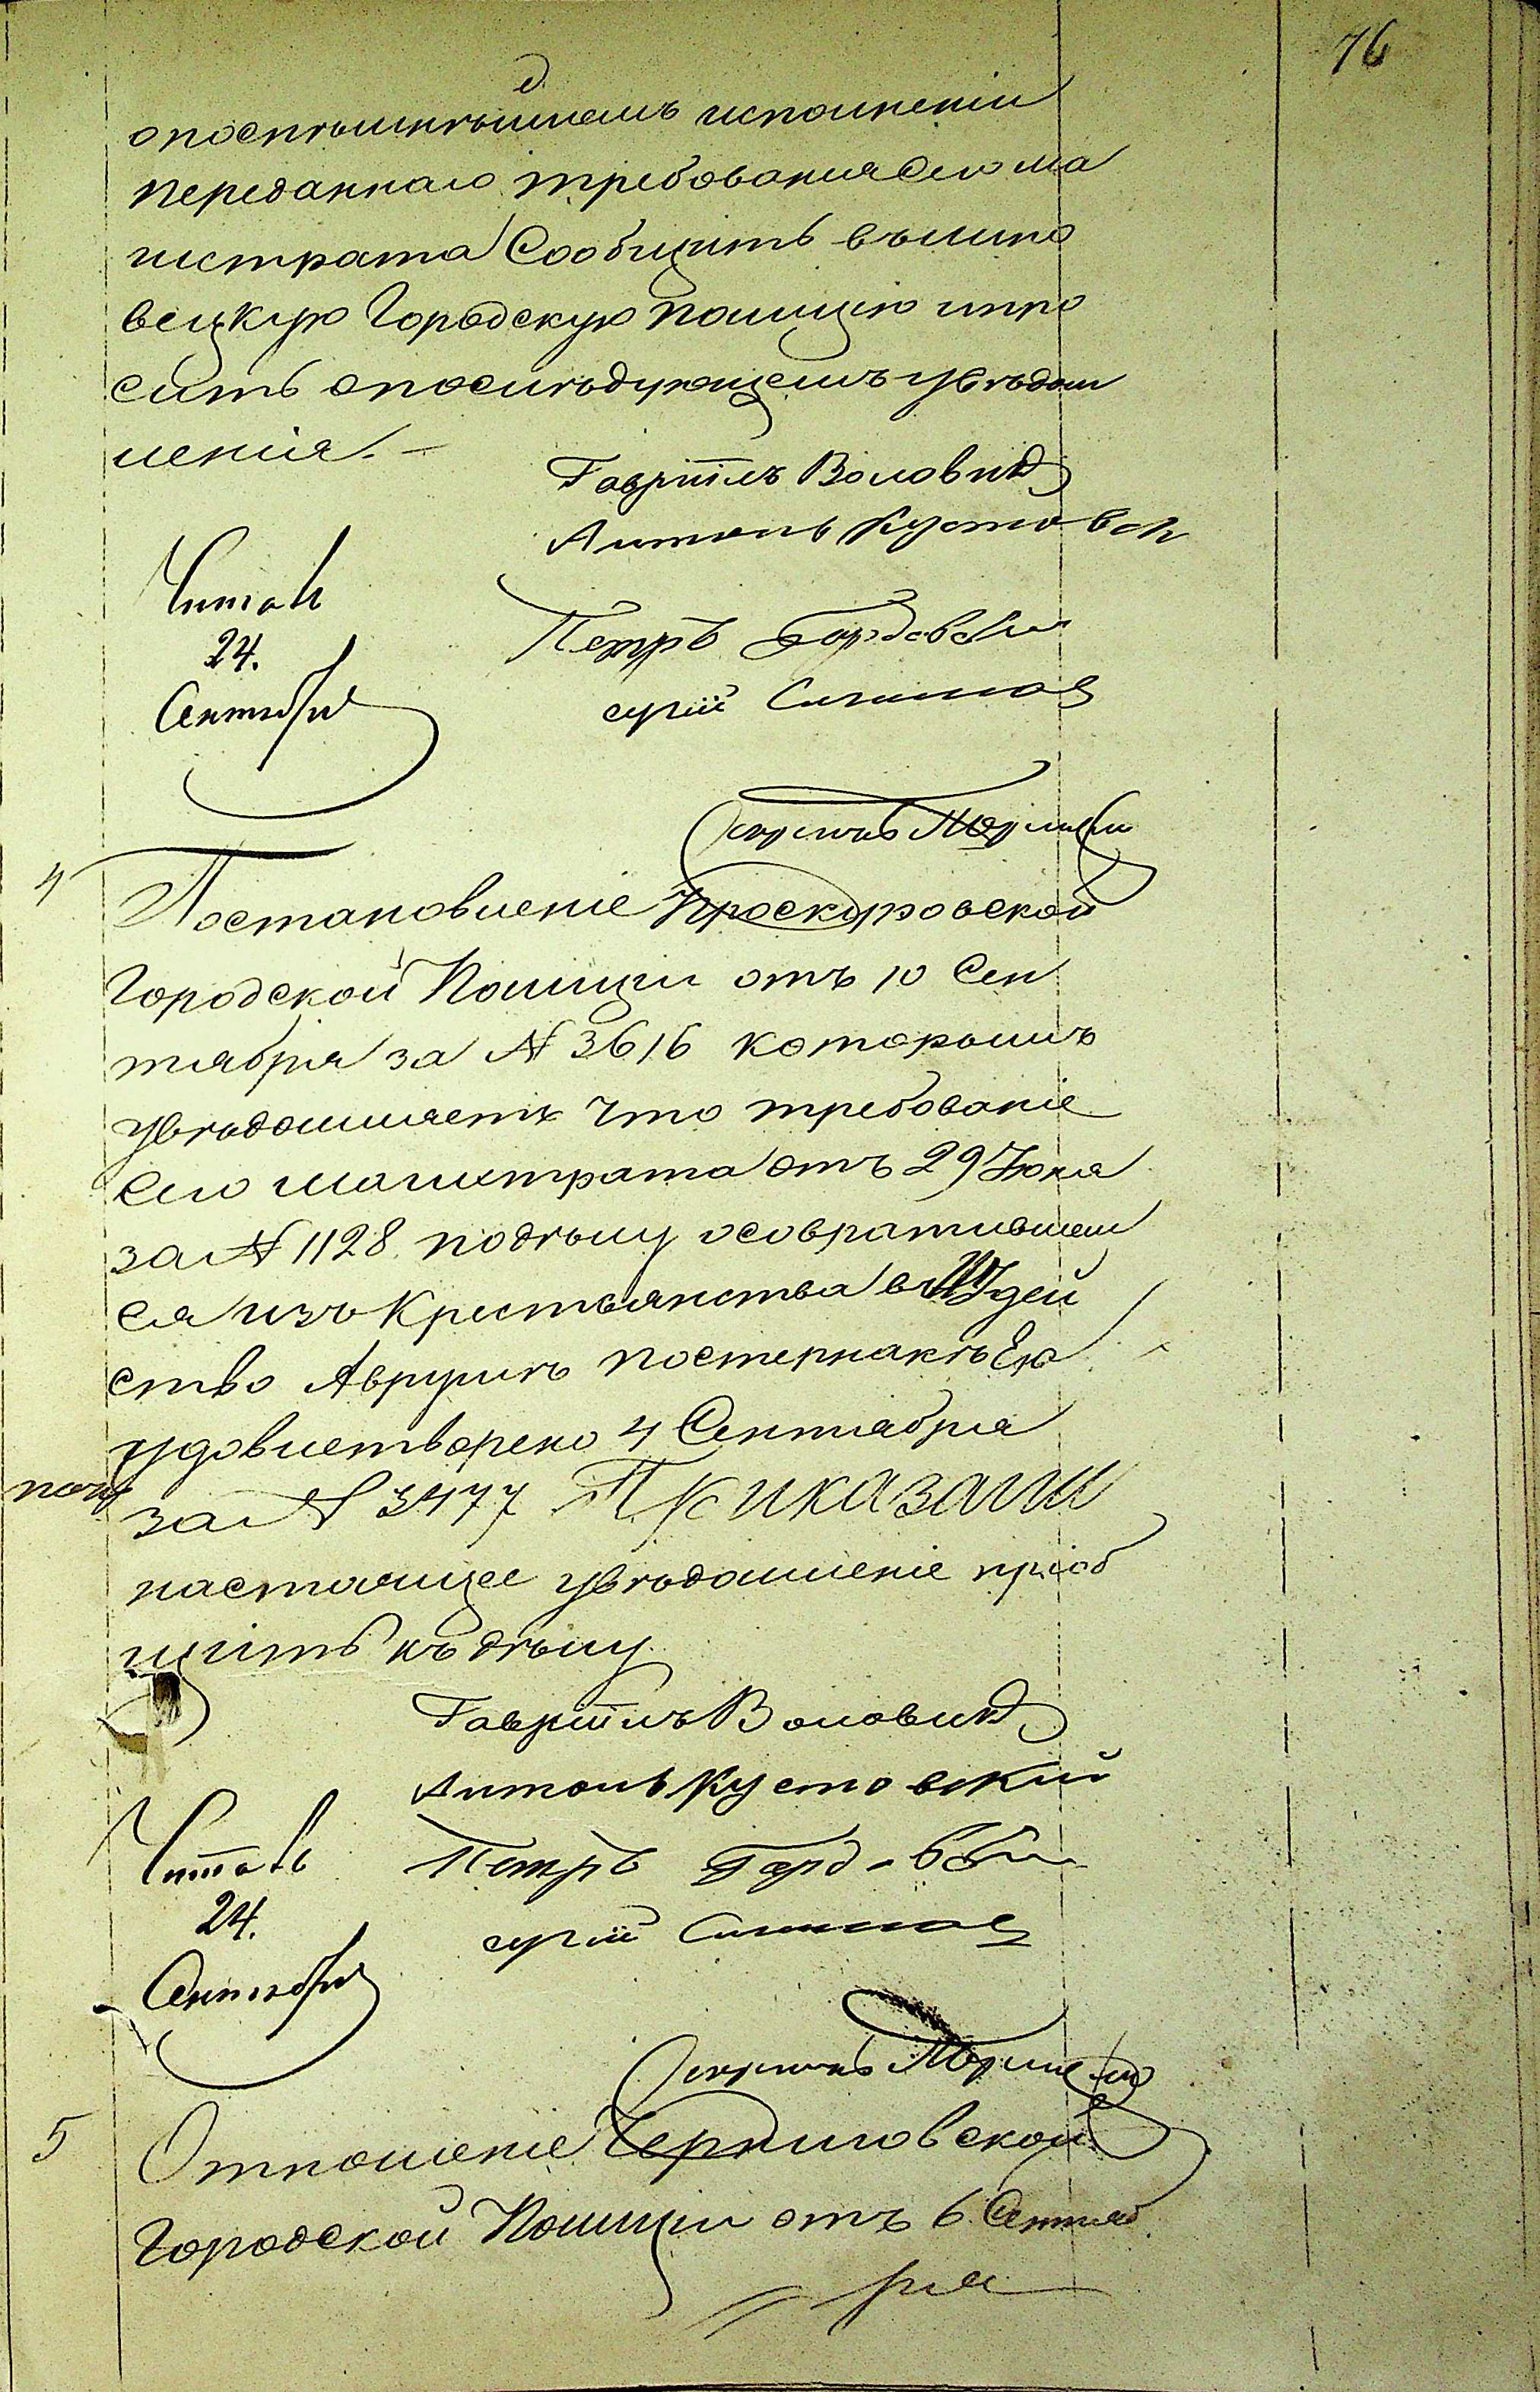 76
о поспѣшнѣйшемъ исполненіи
переданнаго требованія Сего Ма
гистрата Сообщить въ Липо
вецкую Городскую Полицію и про
сить о послѣдующемъ увѣдом
ленія. –
Гавріилъ Воловикъ
Антонъ Кустовскій
Петръ
Читалъ
24.
Сентября
4
Постановленіе Проскуровской
Городской Полиціи отъ 10 Сен
тября за № 3616 которымъ
увѣдомляетъ что требованіе
Сего Магистрата отъ 29 Іюня
за № 1128 по дѣлу о совратившем
ся изъ Крестьянства въ Іудей
ство Аврумѣ Постернакѣ Ею
удовлетворено 4 Сентября
за № 3477 Приказали
настоящее увѣдомленіе пріоб
щить къ дѣлу
Гавріилъ Воловикъ
Антонъ Кустовскій
Петръ
Читалъ
24.
Сентября
5
Отношеніе Черниговской
Городской Полиціи отъ 6 Сентяб
ря